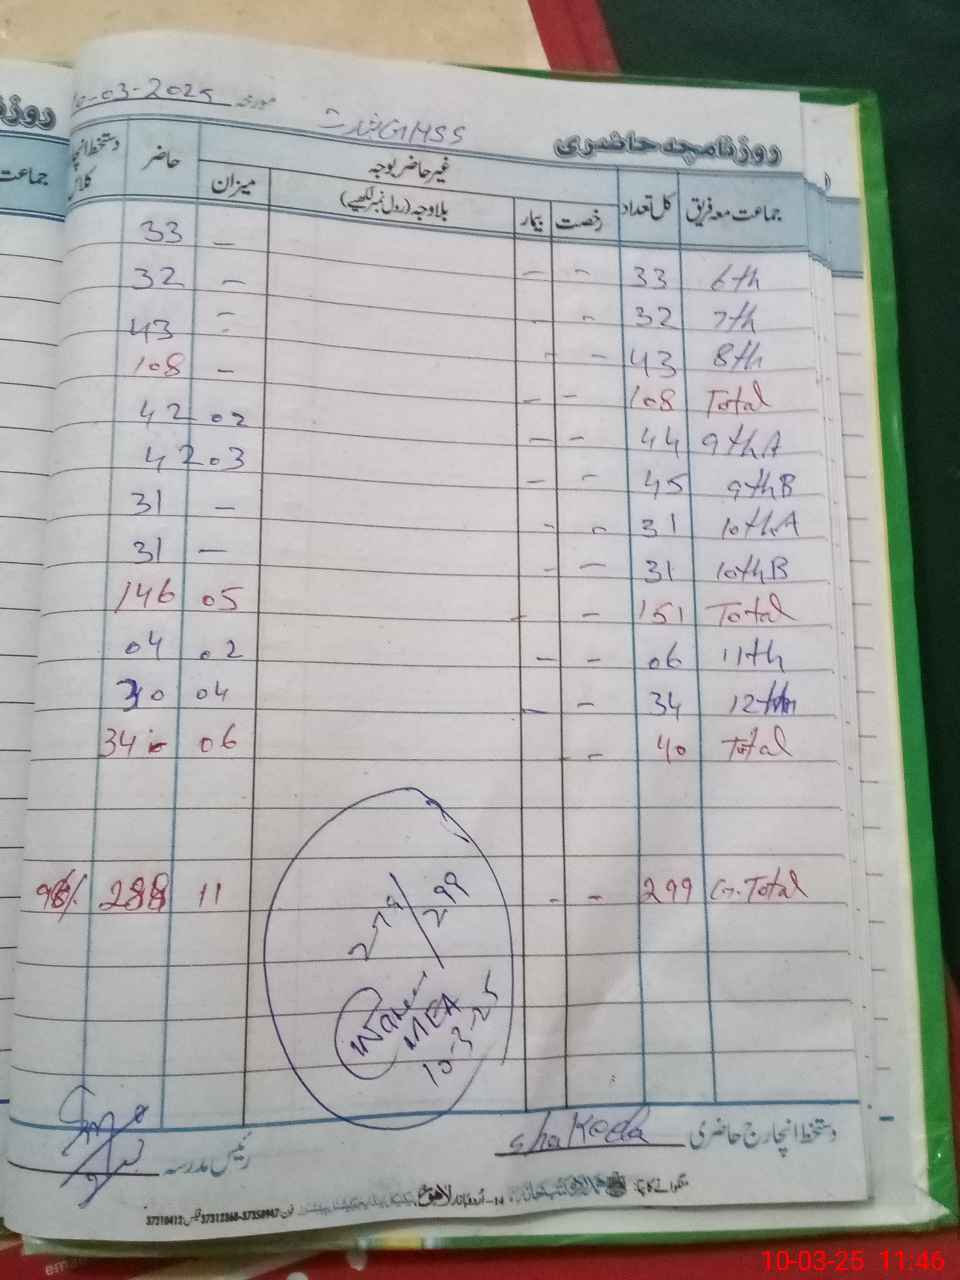 روزنامچہ حاضری GHSS مورخہ 10-03-2025
جماعت معہ فریق کل تعداد غیر حاضر بوجہ حاضر دستخط انچارج کلاس
رخصت بیمار بلاوجہ (رول نمبر لکھیے) میزان
6th 33 - - - 33
7th 32 - - - 32
8th 43 - - - 43
Total 108 - - - 108
9thA 44 - - 02 42
9thB 45 - - 03 42
10thA 31 - - - 31
10thB 31 - - - 31
Total 151 - - 05 146
11th 06 - - 02 04
12th 34 - - 04 30
Total 40 - 06 34
G.Total 299 - - 11 288 96%
279/299
MEA
10-3-25
دستخط انچارج حاضری Shakoela رئیس مدرسہ
اردو بازار لاہور
37310412 37312368-37358947
جماعت
10-03-25 11:46